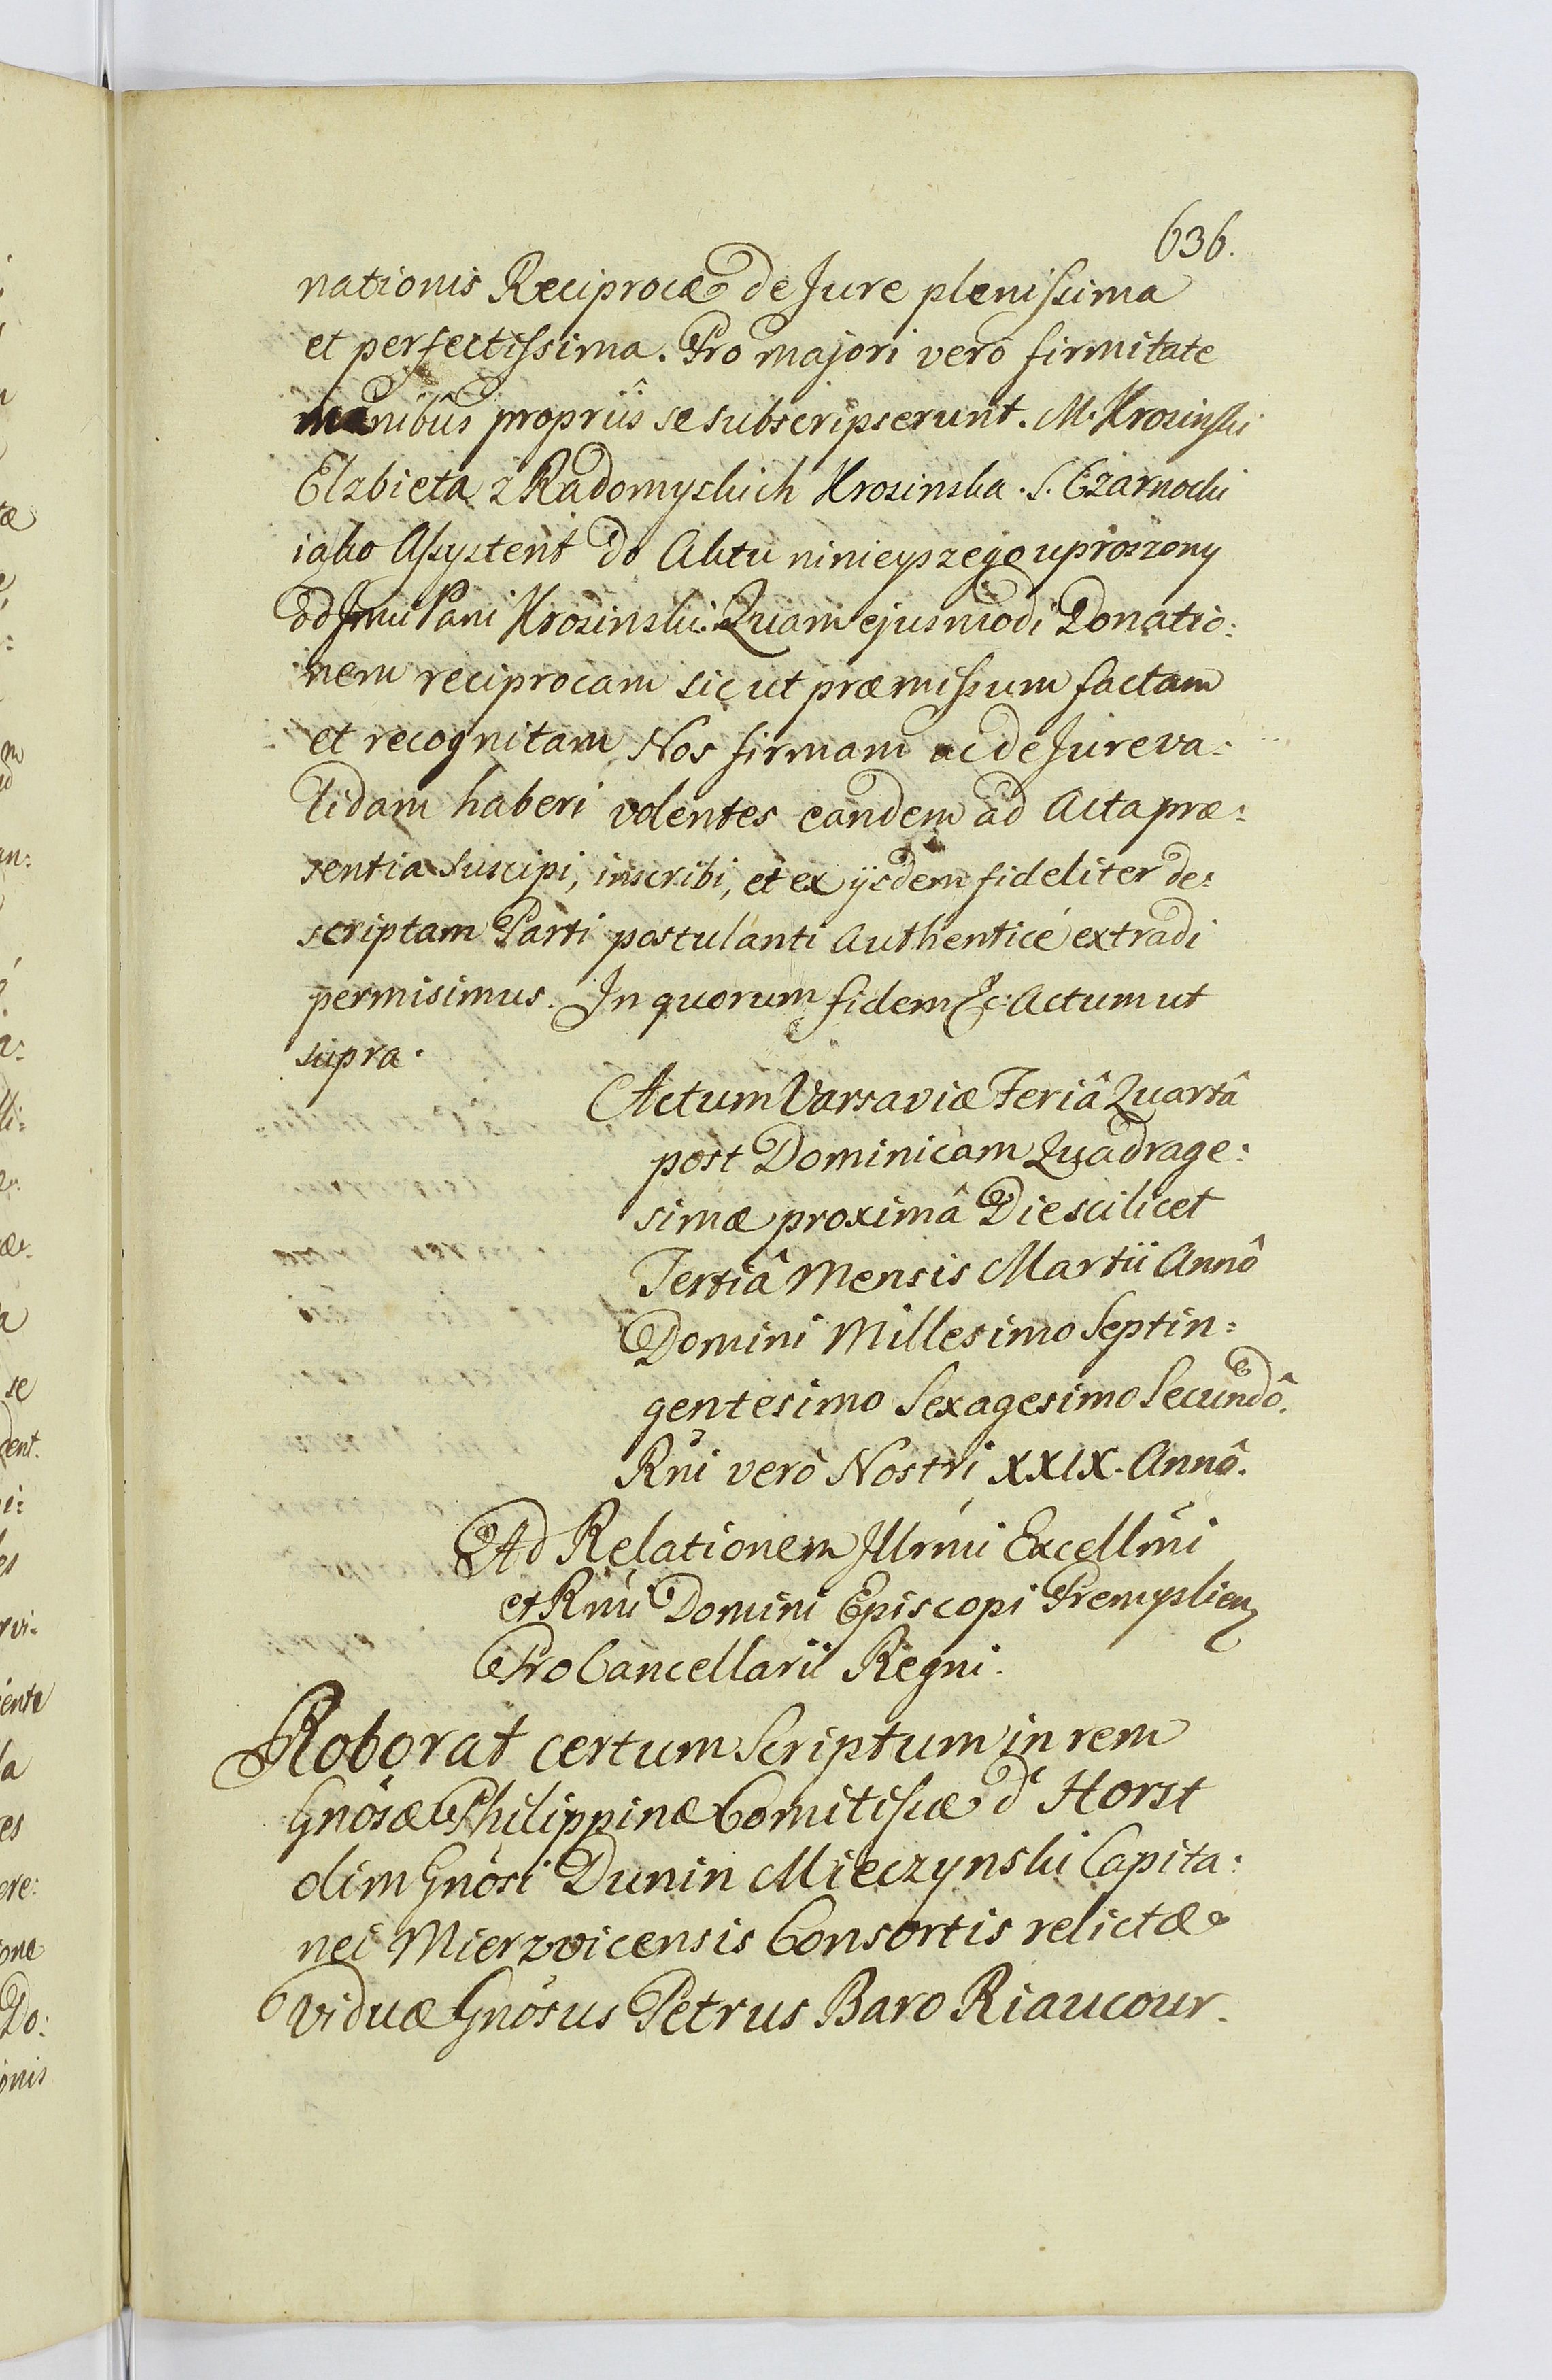 636.
nationis Reciprocæ de Jure plenissima
et perfectissima. Pro majori verò firmitate
manibûs propriîs se subscripserunt. M. Krosinski
Elzbieta z Radomyskich Krosinska. S. Czarnocki
iako Assystent do Aktu ninieyszego uproszony
od Jmci Pani Krosinski. Quam ejusmodi Donatio:
nem reciprocam sic ut præmissum factam
et recognitam Nos firmam ac de Jure va:
lidam haberi volentes eandem ad Acta præ:
sentia suscipi, inscribi, et ex ijsdem fideliter de:
scriptam Parti postulanti Authenticè extradi
permisimus. In quorum fidem &c: Actum ut
supra.
Actum Varsaviæ Feriâ Quartâ
post Dominicam Quadrage:
simæ proximâ Die scilicet
Tertiâ Mensis Martii Annô
Domini Millesimo Septin:
gentesimo Sexagesimo Secundô.
Rñi verò Nostri XXIX. Annô.
Ad Relationem Illrmi Excellmi
et Rmi Domini Episcopi Premyslien
ProCancellarii Regni.
Roborat certum Scriptum in rem
Gnosæ Philippinæ Comitissæ d' Horst
olim Gnosi Dunin Mieczynski Capita:
nei Mierzvicensis Consortis relictæ
viduæ Gnosus Petrus Baro Riaucour.